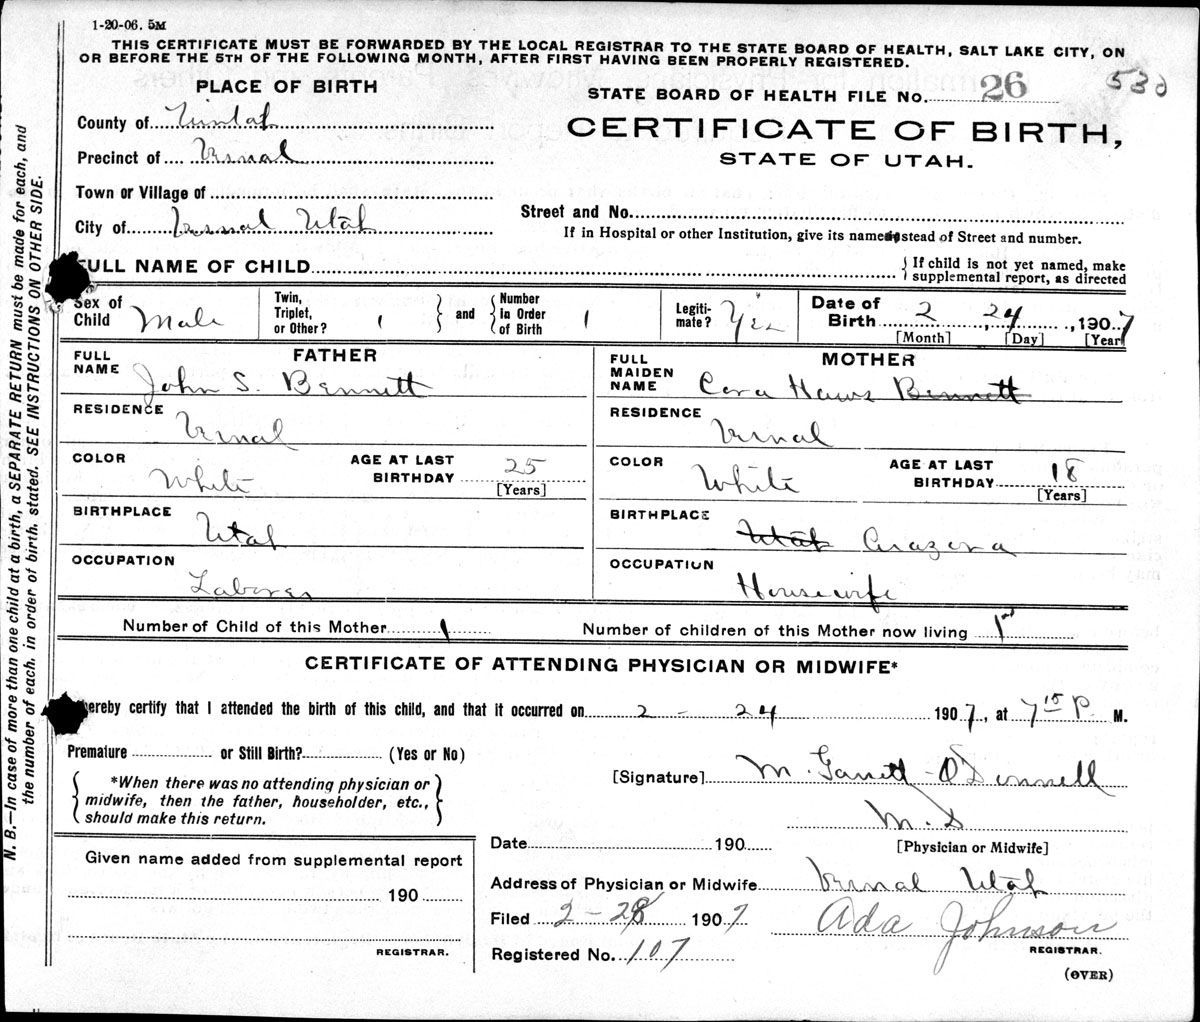 1-20-06. 5M
THIS CERTIFICATE MUST BE FORWARDED BY THE LOCAL REGISTRAR TO THE STATE BOARD OF HEALTH, SALT LAKE CITY, ON
OR BEFORE THE 5TH OF THE FOLLOWING MONTH, AFTER FIRST HAVING BEEN PROPERLY REGISTERED.
PLACE OF BIRTH
STATE BOARD OF HEALTH FILE No. 26 530
County of Uintah
CERTIFICATE OF BIRTH,
Precinct of Vernal
STATE OF UTAH.
Town or Village of
Street and No.
City of Vernal Utah
If in Hospital or other Institution, give its name instead of Street and number.
FULL NAME OF CHILD
{If child is not yet named, make
supplemental report, as directed
Sex of Child Male
Twin, Triplet, or Other? 1
and
Number In Order of Birth 1
Legiti-mate? Yes
Date of Birth 2 24, 1907
[Month] [Day] [Year]
FATHER
FULL NAME John S. Bennett
RESIDENCE Vernal
COLOR White
AGE AT LAST BIRTHDAY 25
[Years]
BIRTHPLACE Utah
OCCUPATION Laborer
MOTHER
FULL MAIDEN NAME Cora Haws Bennett
RESIDENCE Vernal
COLOR White
AGE AT LAST BIRTHDAY 18
[Years]
BIRTHPLACE Utah Arazona
OCCUPATION Housewife
Number of Child of this Mother 1
Number of children of this Mother now living 1
CERTIFICATE OF ATTENDING PHYSICIAN OR MIDWIFE*
hereby certify that I attended the birth of this child, and that it occurred on 2 - 24 1907, at 7 15 P. M.
Premature or Still Birth? (Yes or No)
*When there was no attending physician or
midwife, then the father, householder, etc.,
should make this return.
[Signature] M. Garrett-O'Donnell
M.D
[Physician or Midwife]
Date 190
Address of Physician or Midwife Vernal Utah
Filed 2-28 1907
Ada Johnson
REGISTRAR.
Registered No. 107
(OVER)
Given name added from supplemental report
190
REGISTRAR.
N. B.—In case of more than one child at a birth, a SEPARATE RETURN must be made for each, and
the number of each, in order of birth, stated. SEE INSTRUCTIONS ON OTHER SIDE.